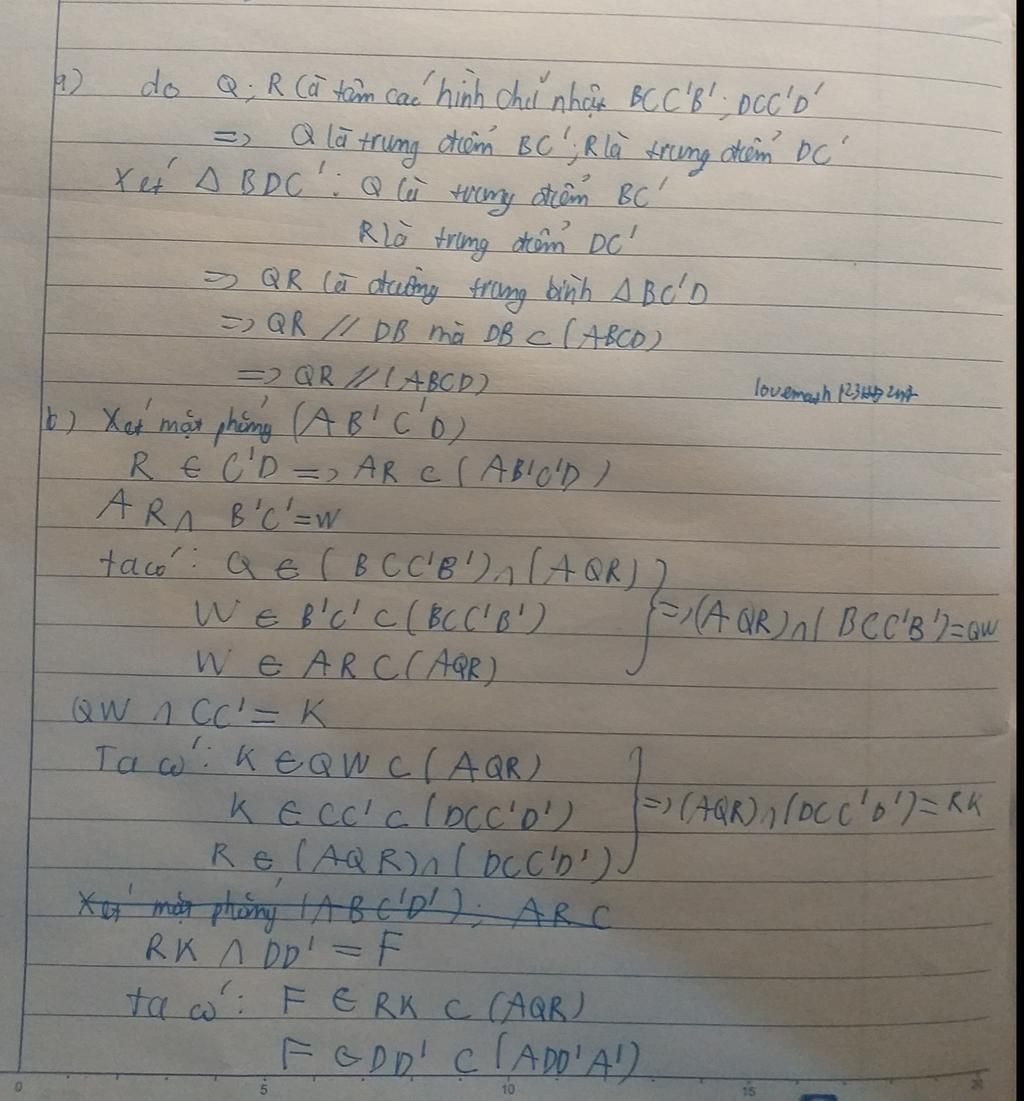 a) do Q; R là tâm các hình chữ nhật BCC'B'; DCC'D'
=> Q là trung điểm BC'; R là trung điểm DC'
Xét Δ BDC': Q là trung điểm BC'
R là trung điểm DC'
=> QR là đường trung bình Δ BC'D
=> QR // DB mà DB ⊂ (ABCD)
=> QR // (ABCD)
b) Xét mặt phẳng (AB'C'D)
R ∈ C'D => AR ⊂ (AB'C'D)
AR ∩ B'C' = W
ta có: Q ∈ (BCC'B') ∩ (AQR)
W ∈ B'C' ⊂ (BCC'B') } => (AQR) ∩ (BCC'B') = QW
W ∈ AR ⊂ (AQR)
QW ∩ CC' = K
Ta có: K ∈ QW ⊂ (AQR)
K ∈ CC' ⊂ (DCC'D') } => (AQR) ∩ (DCC'D') = RK
R ∈ (AQR) ∩ (DCC'D')
Xét mặt phẳng (ABC'D'); AR ⊂
RK ∩ DD' = F
ta có: F ∈ RK ⊂ (AQR)
F ∈ DD' ⊂ (ADD'A')
0 5 10 15 20